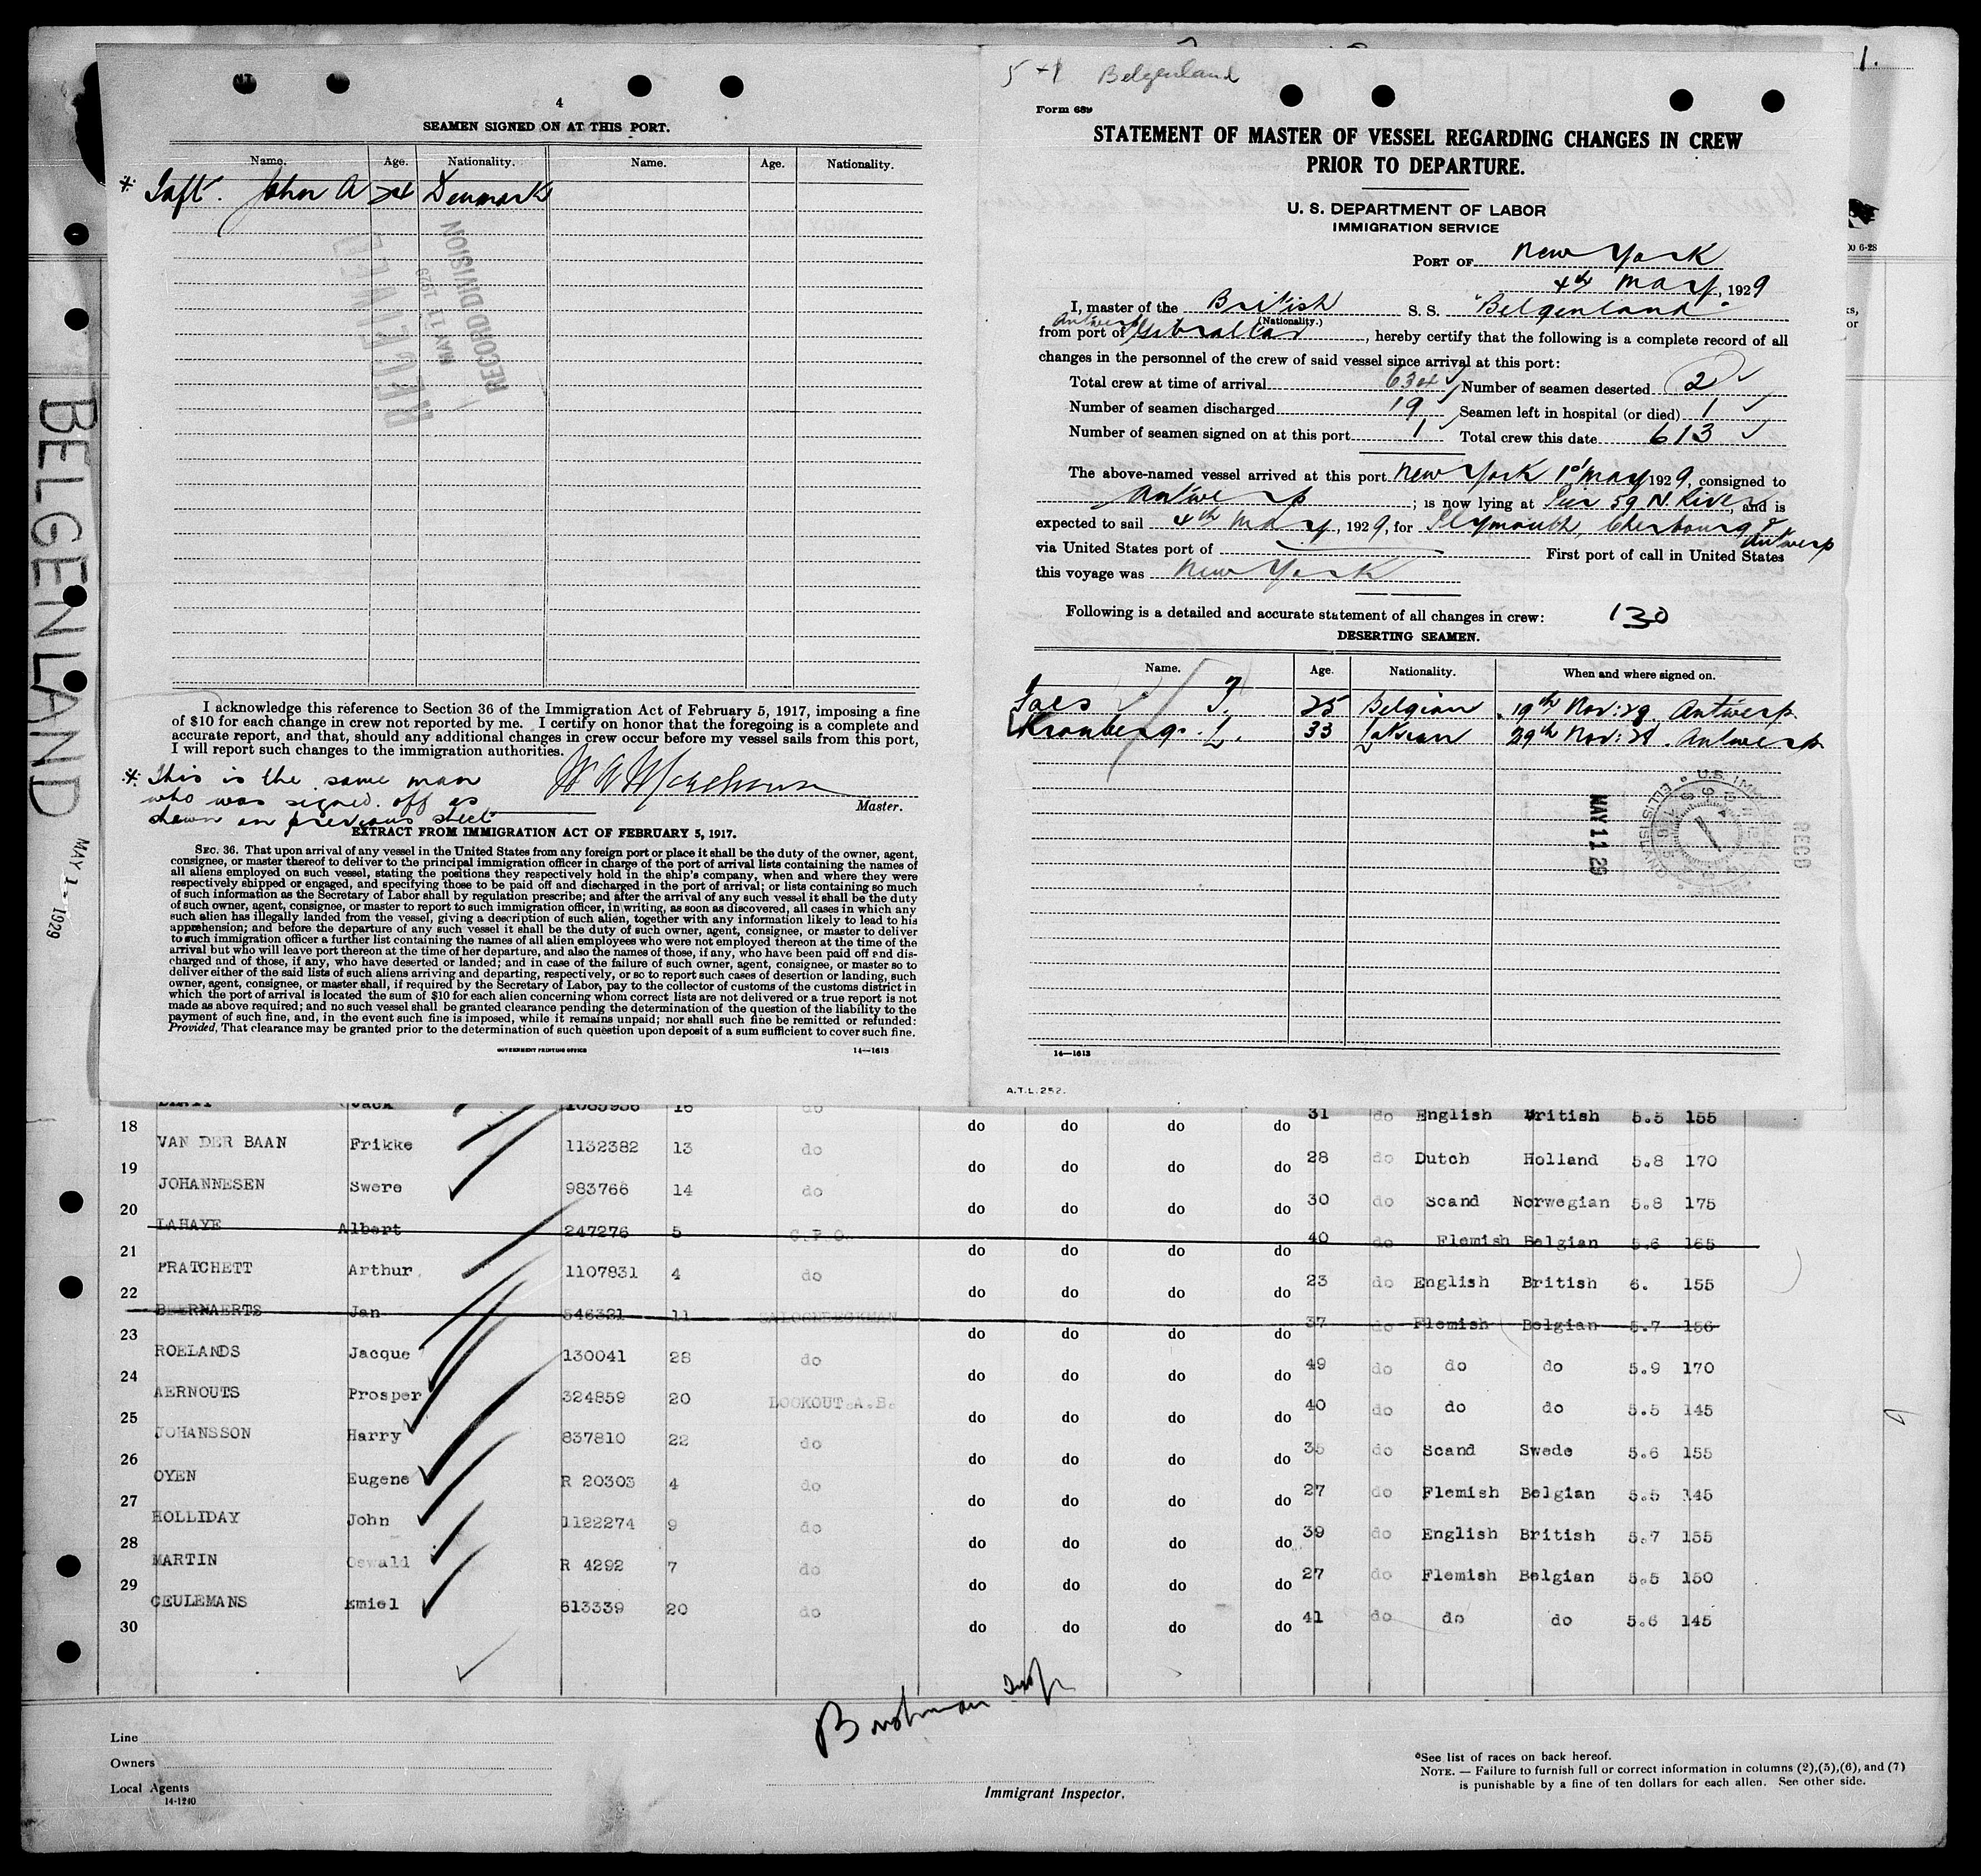 4
SEAMEN SIGNED ON AT THIS PORT.
Name. Age. Nationality. Name. Age. Nationality.
* Taft. John A 24 Denmark
RECEIVED
MAY 11 1929
RECORD DIVISION
I acknowledge this reference to Section 36 of the Immigration Act of February 5, 1917, imposing a fine
of $10 for each change in crew not reported by me. I certify on honor that the foregoing is a complete and
accurate report, and that, should any additional changes in crew occur before my vessel sails from this port,
I will report such changes to the immigration authorities.
* This is the same man
who was signed off as
shewn on previous sheet
Master.
EXTRACT FROM IMMIGRATION ACT OF FEBRUARY 5, 1917.
SEC. 36. That upon arrival of any vessel in the United States from any foreign port or place it shall be the duty of the owner, agent,
consignee, or master thereof to deliver to the principal immigration officer in charge of the port of arrival lists containing the names of
all aliens employed on such vessel, stating the positions they respectively hold in the ship's company, when and where they were
respectively shipped or engaged, and specifying those to be paid off and discharged in the port of arrival; or lists containing so much
of such information as the Secretary of Labor shall by regulation prescribe; and after the arrival of any such vessel it shall be the duty
of such owner, agent, consignee, or master to report to such immigration officer, in writing, as soon as discovered, all cases in which any
such alien has illegally landed from the vessel, giving a description of such alien, together with any information likely to lead to his
apprehension; and before the departure of any such vessel it shall be the duty of such owner, agent, consignee, or master to deliver
to such immigration officer a further list containing the names of all alien employees who were not employed thereon at the time of the
arrival but who will leave port thereon at the time of her departure, and also the names of those, if any, who have been paid off and dis-
charged and of those, if any, who have deserted or landed; and in case of the failure of such owner, agent, consignee, or master so to
deliver either of the said lists of such aliens arriving and departing, respectively, or so to report such cases of desertion or landing, such
owner, agent, consignee, or master shall, if required by the Secretary of Labor, pay to the collector of customs of the customs district in
which the port of arrival is located the sum of $10 for each alien concerning whom correct lists are not delivered or a true report is not
made as above required; and no such vessel shall be granted clearance pending the determination of the question of the liability to the
payment of such fine, and, in the event such fine is imposed, while it remains unpaid; nor shall such fine be remitted or refunded:
Provided, That clearance may be granted prior to the determination of such question upon deposit of a sum sufficient to cover such fine.
GOVERNMENT PRINTING OFFICE 14—1613
BELGENLAND
MAY 1 - 1929
5 + 1 Belgenland
1.
Form 689
STATEMENT OF MASTER OF VESSEL REGARDING CHANGES IN CREW
PRIOR TO DEPARTURE.
U. S. DEPARTMENT OF LABOR
IMMIGRATION SERVICE
PORT OF New York
4th May, 1929
I, master of the British S. S. "Belgenland"
(Nationality.)
Antwerp
from port of Gibraltar, hereby certify that the following is a complete record of all
changes in the personnel of the crew of said vessel since arrival at this port:
Total crew at time of arrival 634 Number of seamen deserted 2
Number of seamen discharged 19 Seamen left in hospital (or died) 1
Number of seamen signed on at this port 1 Total crew this date 613
The above-named vessel arrived at this port New York 1st May 1929, consigned to
Antwerp; is now lying at Pier 59 N River, and is
expected to sail 4th May, 1929, for Plymouth, Cherbourg &
Antwerp
via United States port of First port of call in United States
this voyage was New York
Following is a detailed and accurate statement of all changes in crew: 130
DESERTING SEAMEN.
Name. Age. Nationality. When and where signed on.
J. 25 Belgian 19th Nov: 28 Antwerp
Kronberg. L. 33 Latvian 29th Nov: 28. Antwerp
MAY 11 29
RECD
14—1613
A.T.L. 252.
Jack 1085936 15 do 31 do English British 5.5 155
18 do do do do
VAN DER BAAN Frikke 1132382 13 do 28 do Dutch Holland 5.8 170
19 do do do do
JOHANNESEN Swere 983766 14 do 30 do Scand Norwegian 5.8 175
20 do do do do
LAHAYE Albert 247276 5 C.P.O. 40 do Flemish Belgian 5.6 165
21 do do do do
PRATCHETT Arthur 1107831 4 do 23 do English British 6. 155
22 do do do do
BEERNAERTS Jan 546321 11 SALOONDECKMAN 37 do Flemish Belgian 5.7 156
23 do do do do
ROELANDS Jacque 130041 28 do 49 do do do 5.9 170
24 do do do do
AERNOUTS Prosper 324859 20 LOOKOUT.A.B. 40 do do do 5.5 145
25 do do do do
JOHANSSON Harry 837810 22 do 35 do Scand Swede 5.6 155
26 do do do do
OYEN Eugene R 20303 4 do 27 do Flemish Belgian 5.5 145
27 do do do do
HOLLIDAY John 1122274 9 do 39 do English British 5.7 155
28 do do do do
MARTIN Oswald R 4292 7 do 27 do Flemish Belgian 5.5 150
29 do do do do
CEULEMANS Emiel 513339 20 do 41 do do do 5.6 145
30 do do do do
Line
Owners
Local Agents
14-1240
Immigrant Inspector.
*See list of races on back hereof.
NOTE. — Failure to furnish full or correct information in columns (2),(5),(6), and (7)
is punishable by a fine of ten dollars for each alien. See other side.